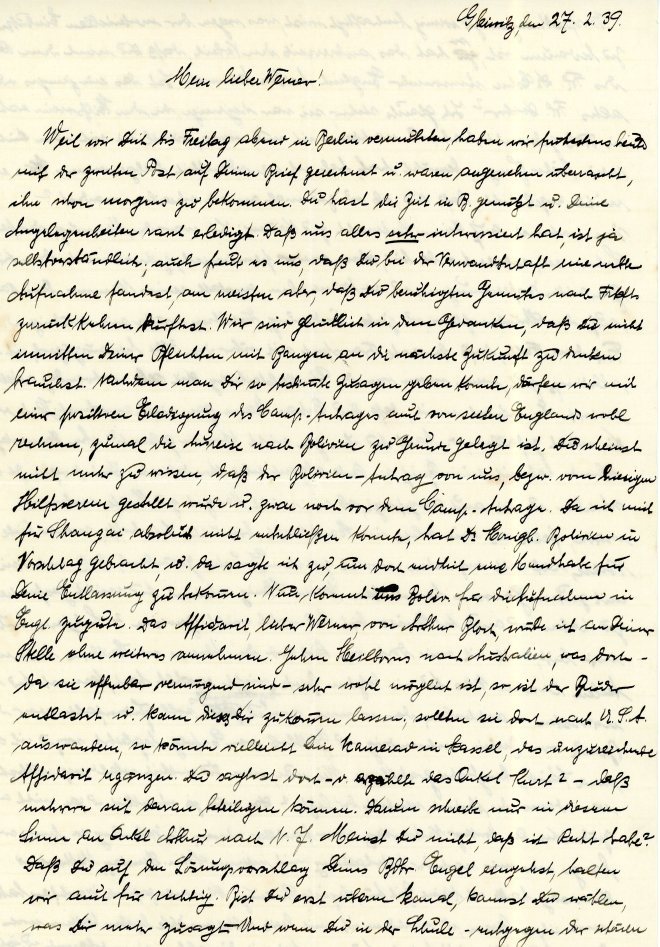 Gleiwitz, den 27. 2. 39.
Mein lieber Werner!
Weil wir Dich bis Freitag abend in Berlin vermuteten, haben wir frühestens heute
mit der zweiten Post auf Deinen Brief gerechnet u. waren angenehm überrascht,
ihn schon morgens zu bekommen. Du hast die Zeit in B. genutzt u. Deine
Angelegenheiten rasch erledigt. Daß uns alles sehr interessiert hat, ist ja
selbstverständlich; auch freut es uns, daß Du bei der Verwandtschaft eine nette
Aufnahme fandest, am meisten aber, daß Du beruhigten Gemütes nach
zurückkehren durftest. Wir sind glücklich in dem Gedanken, daß Du nicht
inmitten Deiner Pflichten mit Bangen an die nächste Zukunft zu denken
brauchst. Nachdem man Dir so bestimmte Zusagen geben konnte, dürfen wir mit
einer positiven Erledigung des Camp-Antrages auch von seiten Englands wohl
rechnen, zumal die Ausreise nach Bolivien zu Grunde gelegt ist. Du scheinst
nicht mehr zu wissen, daß der Bolivien-Antrag von uns, bezw. vom hiesigen
Hilfsverein gestellt wurde u. zwar noch vor dem Camp-Antrage. Da ich mich
für Shangai absolut nicht entschließen konnte, hat Dr. Bolivien in
Vorschlag gebracht, u. da sagte ich zu, um doch endlich eine Handhabe für
Deine Entlassung zu bekommen. Nun kommt Boliv. für die Aufnahme in
Engl. zugute. Das Affidavit lieber Werner von Arthur Bloch, würde ich an Deiner
Stelle ohne weiteres annehmen. Gehen Heilborns nach Australien, was doch -
da sie offenbar vermögend sind - sehr wohl möglich ist, so ist der Bruder
entlastet u. kann Dir zukommen lassen; sollten sie doch nach U.S.A.
auswandern, so könnte vielleicht Dein Kamerad in Kassel, das unzureichende
Affidavit ergänzen. Du sagtest doch - o. erzählte das Onkel Kurt? - daß
mehrere sich daran beteiligen können. Darum schreibe nur in diesem
Sinne an Onkel Arthur nach N. J. Meinst Du nicht, daß ich Recht habe?
Daß Du auf den Lösungsvorschlag Deines Bdbr. Engel eingehst, halten
wir auch für richtig. Bist Du erst überm Kanal, kannst Du wählen,
was Dir mehr zusagt. Und wenn Du in der Schule - entgegen der schönen